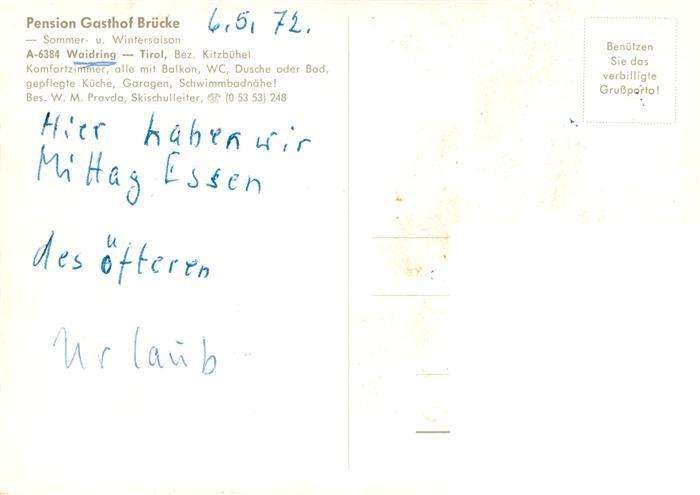 Pension Gasthof Brücke 6.5.72.
— Sommer- u. Wintersaison
A-6384 Waidring — Tirol, Bez. Kitzbühel
Komfortzimmer, alle mit Balkon, WC, Dusche oder Bad,
gepflegte Küche, Garagen, Schwimmbadnähe!
Bes. W. M. Pravda, Skischulleiter, ☎ (0 53 53) 248
Hier haben wir
Mittag Essen
des öfteren
Urlaub
Benützen
Sie das
verbilligte
Grußporto!